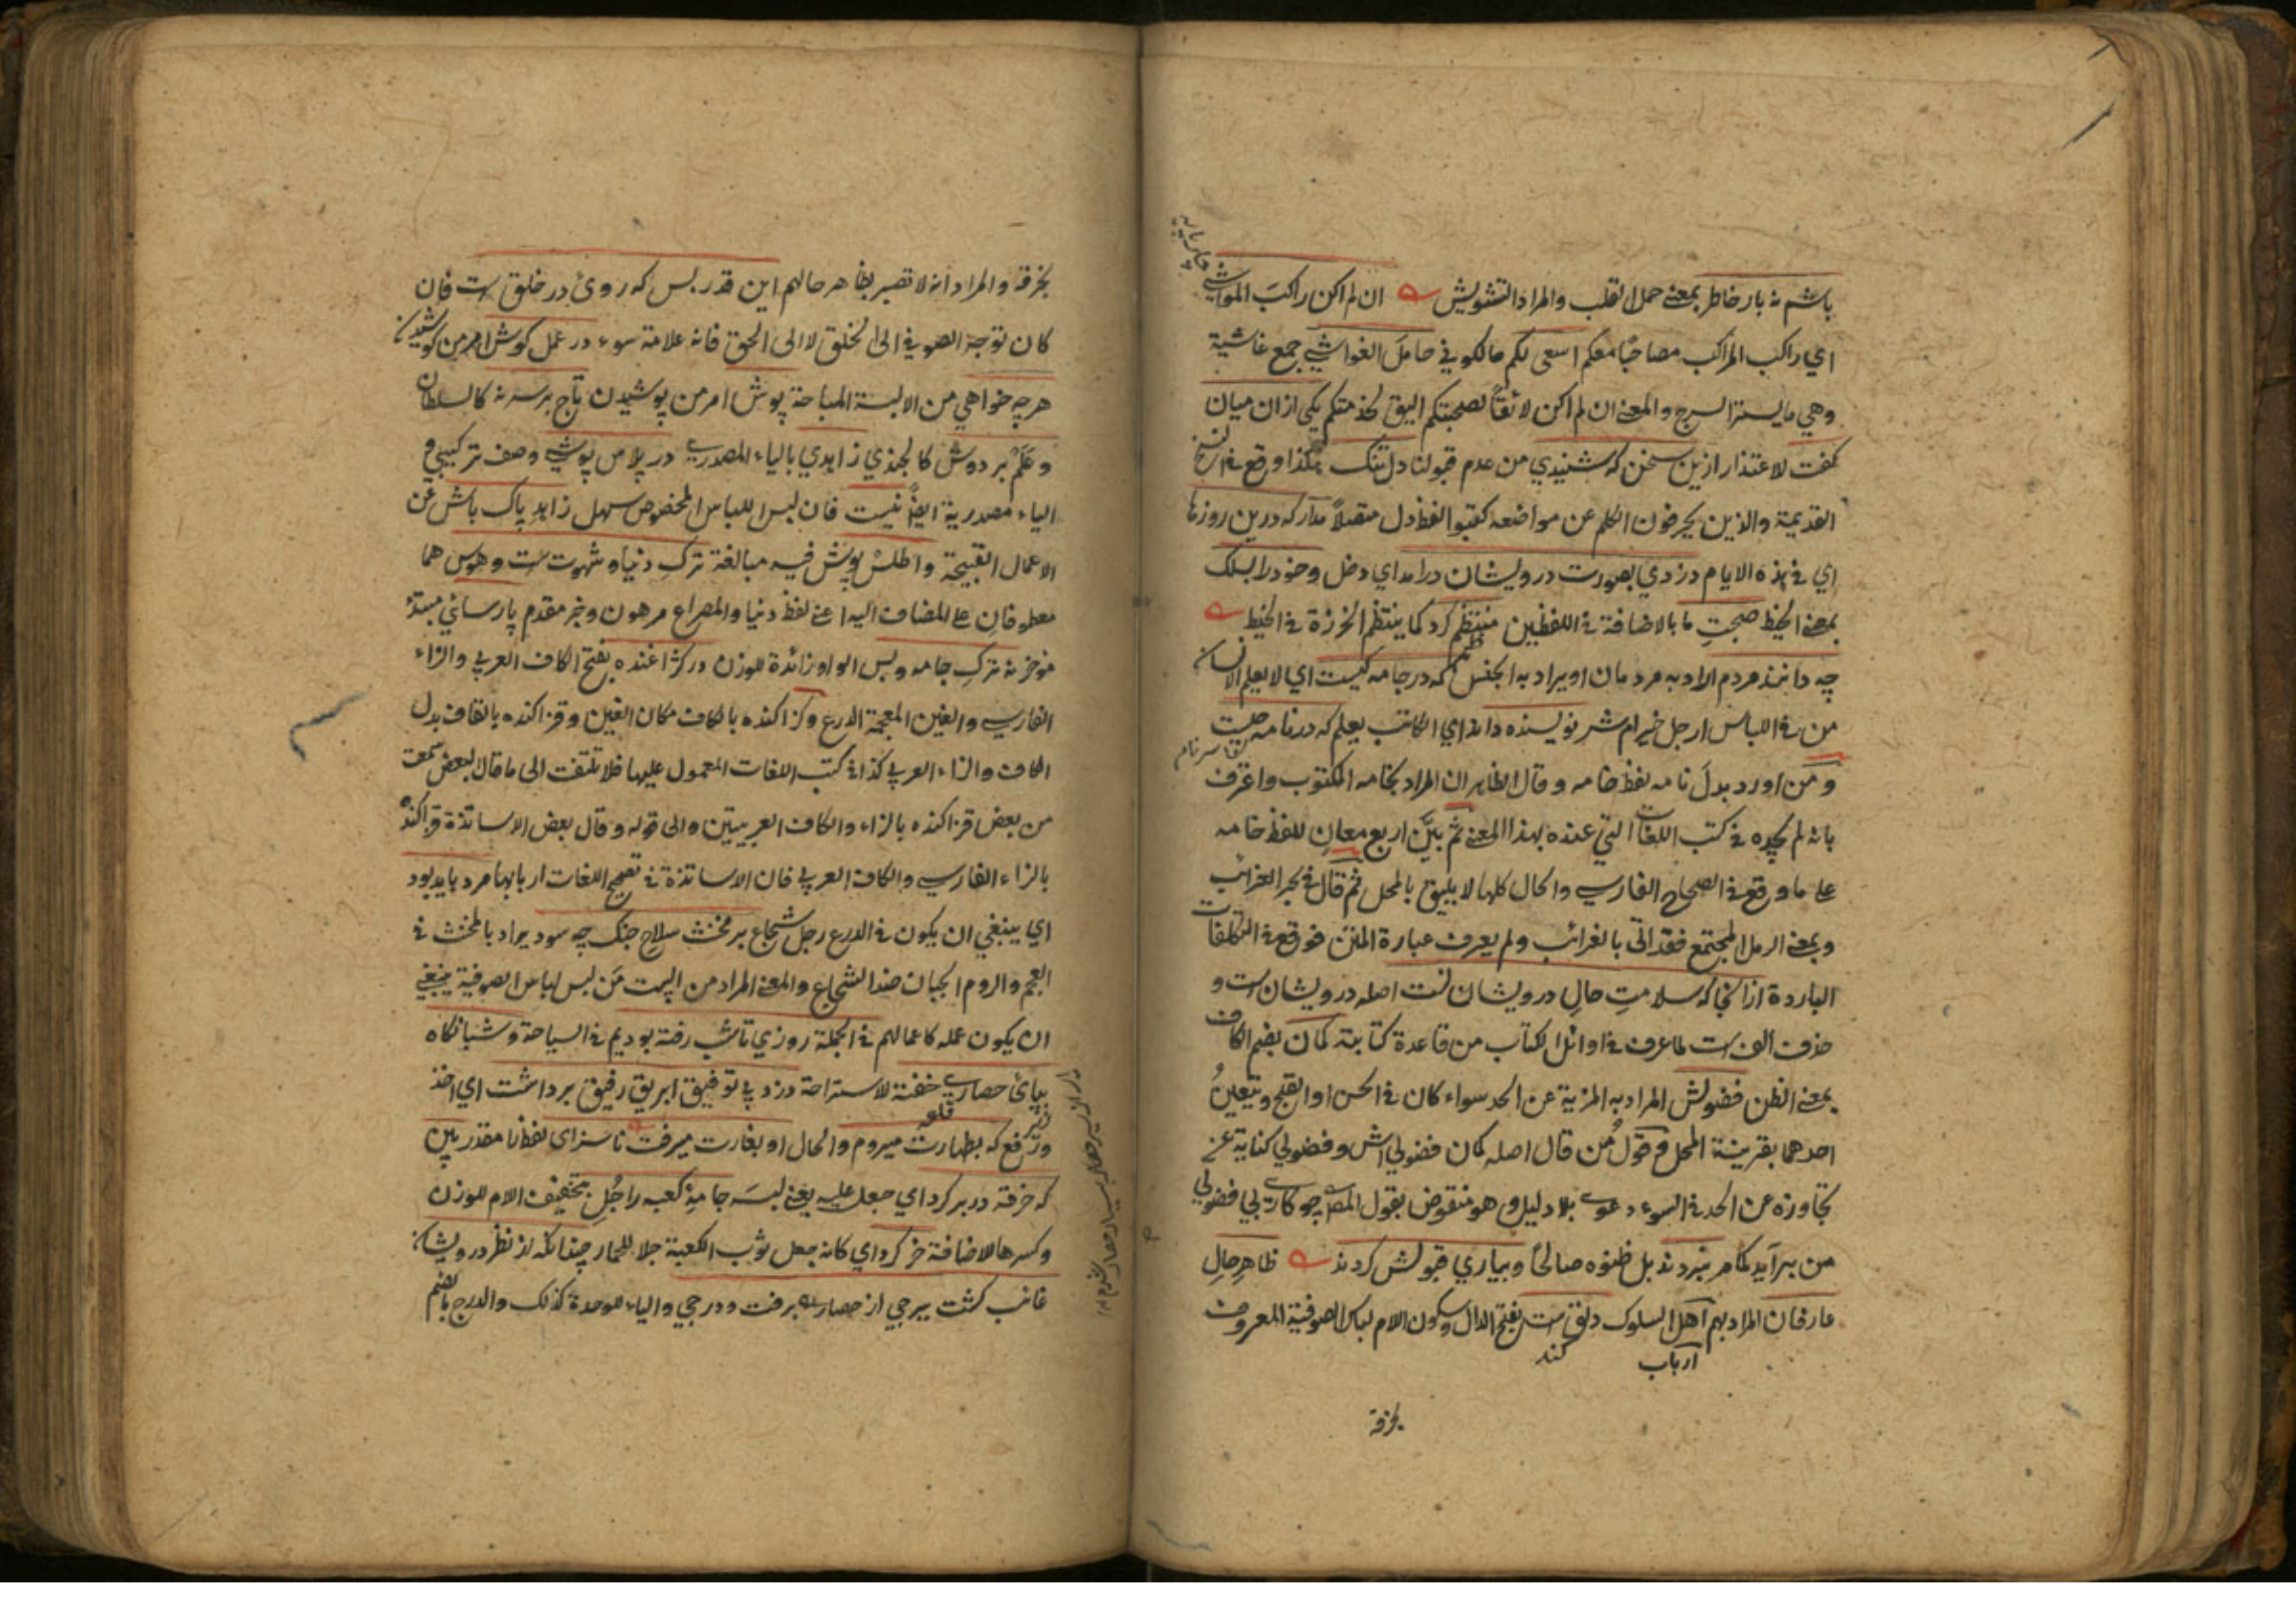 باشم نه بار خاطر بمعنى حمل القلب والمراد التشويش ان لم اكن راكب المواشي
اي راكب المراكب مصاحبًا معكم اسعى لكم مالكوني حامل الغواشي جمع غاشية
وهي ما يستر السرج والمعنى ان لم اكن لائقًا لصحبتكم اليق لخدمتكم يكي ازان ميان
كفت للاعتذار ازين سخن كه شنيدي من عدم قبولنا دل تنك هكذا وقع في النسخ
القديمة والذين يحرفون الكلم عن مواضعه كتبوا لفظ دل متصلاً مدار كه درين روزها
اي في هذه الايام دزدي بصورت درويشان درامد اي دخل وخود را بسلك
بمعنى الخيط صحبت ما بالاضافة في اللفظين منتظم كرد كما ينتظم الخرزة في الخيط
چه دانند مردم المراد به مردمان او يراد به الجنس كه در جامه كيست اي لا يعلم الانسان
من في اللباس ارجل خير ام شر نويسنده داند اي الكاتب يعلم كه در نامه چيست
ومن اورد بدل نامه لفظ خامه وقال الظاهر ان المراد بخامه المكتوب واعترف
بانه لم يجده في كتب اللغات التي عنده بهذا المعنى ثم بيّن اربع معان للفظ خامه
على ما وقع في الصحاح الفارسي والحال كلها لا يليق بالمحل ثم قال في بحر الغرائب
وبمعنى الرمل المجتمع فقد اتى بالغرائب ولم يعرف عبارة المتن فوقع في التكلفات
الباردة ازانجا كه سلامت حال درويشانست اصله درويشان است و
حذف الف است لما عرف في اوائل الكتاب من قاعدة كتابته كمان بضم الكاف
بمعنى الظن فضولش المراد به المزية عن الحد سواء كان في الحسن او القبح ويتعين
احدهما بقرينة المحل فقول من قال اصله كمان فضولي اش وفضولي كناية عن
تجاوزه عن الحد في السوء دعوى بلا دليل وهو منقوض بقول المص چو كاري بي فضولي
من برآيد كام نبردند بل ظنوه صالحًا وبياري قبولش كردند ظاهر حال
عارفان المراد بهم اهل السلوك دلق است بفتح الدال وسكون اللام لباس الصوفية المعروف
ارباب
بخرقة
بخرقة والمراد انه لا تصير بظاهر حالهم اين قدر بس كه روى در خلق است فان
كان توجه الصوفي الى الخلق لا الى الحق فانه علامة سوء در عمل كوش امر من كوشيدن
هرچه خواهي من الالبسة المباحة پوش امر من پوشيدن تاج بر سر نه كالسلطان
وعلم بر دوش كالجندي زاهدي بالياء المصدري در پلاس پوشي وصف تركيبي و
الياء مصدرية ايضًا نيست فان لبس اللباس المخصوص سهل زاهد پاك باش عن
الاعمال القبيحة واطلس پوش فيه مبالغة ترك دنيا وشهوت است وهوس هما
معطوفان على المضاف اليه اعنى لفظ دنيا والمصراع مرهون وخبر مقدم پارسائي مبتدء
مؤخر نه ترك جامه وبس الواو زائدة للوزن در كژاغنده بفتح الكاف العربي والزاء
الفارسي والغين المعجمة الدرع وكژاكنده بالكاف مكان الغين وقزاكنده بالقاف بدل
الكاف والزاء العربي كذا في كتب اللغات المعمول عليها فلا تلتفت الى ما قال البعض سمعت
من بعض قزاكنده بالزاء والكاف العربيتين والى قوله وقال بعض الاساتذة قژاكنده
بالزاء الفارسي والكاف العربي فان الاساتذة في تصحيح اللغات اربابها مرد بايد بود
اي ينبغي ان يكون في الدرع رجل شجاع بر مخنث سلاح جنك چه سود يراد بالمخنث في
العجم والروم الجبان ضد الشجاع والمعنى المراد من البيت من لبس لباس الصوفية ينبغي
ان يكون عمله كاعمالهم في الجملة روزي تا شب رفته بوديم في السياحة وشبانكاه
بپاى حصاري خفته للاستراحة دزد بي توفيق ابريق رفيق برداشت اي اخذ
ورفع كه بطهارت ميروم والحال او بغارت ميرفت ناسزاى لفظ را مقدر بين
كه خرقه در بر كرد اي جعل عليه يعنى لبسه جامهٔ كعبه را جل بتخفيف اللام للوزن
وكسرها للاضافة خر كرد اي كانه جعل ثوب الكعبة جلا للحمار چندانكه از نظر درويشان
غائب كشت ببرجي از حصار بر رفت ودرجي والياء للوحدة كذلك والدرج بالضم